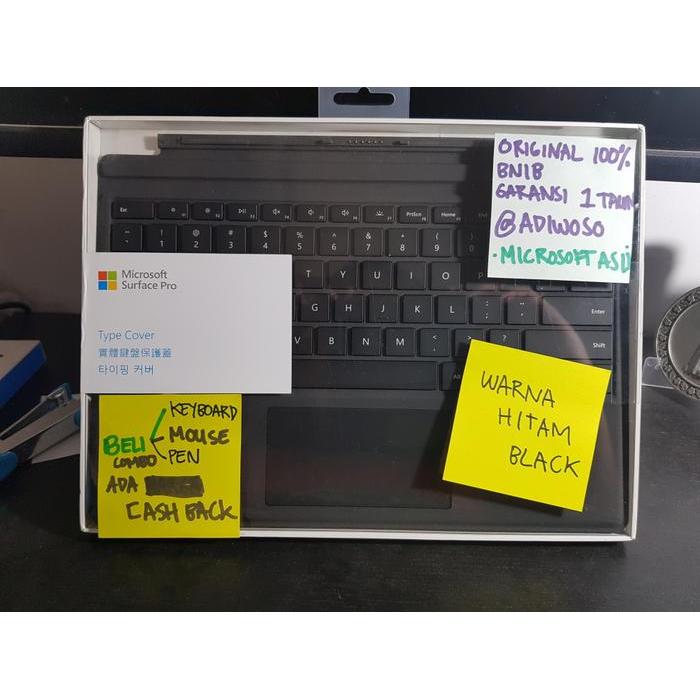 ORIGINAL 100%
BNIB
GARANSI 1 TAHUN
@ADIWOSO
·MICROSOFT ASLI
Microsoft
Surface Pro
Type Cover
實體鍵盤保護蓋
타이핑 커버
Esc F1 F2 F3 F4 F5 F6 F7 PrtScn F8 Home
~ ! @ # $ % ^ & * (
1 2 3 4 5 6 7 8 9
T Y U I O P
G H J K L : " Enter
V B N M < > ? Shift
Alt
WARNA
HITAM
BLACK
KEYBOARD
BELI MOUSE
COMBO PEN
ADA
CASH BACK